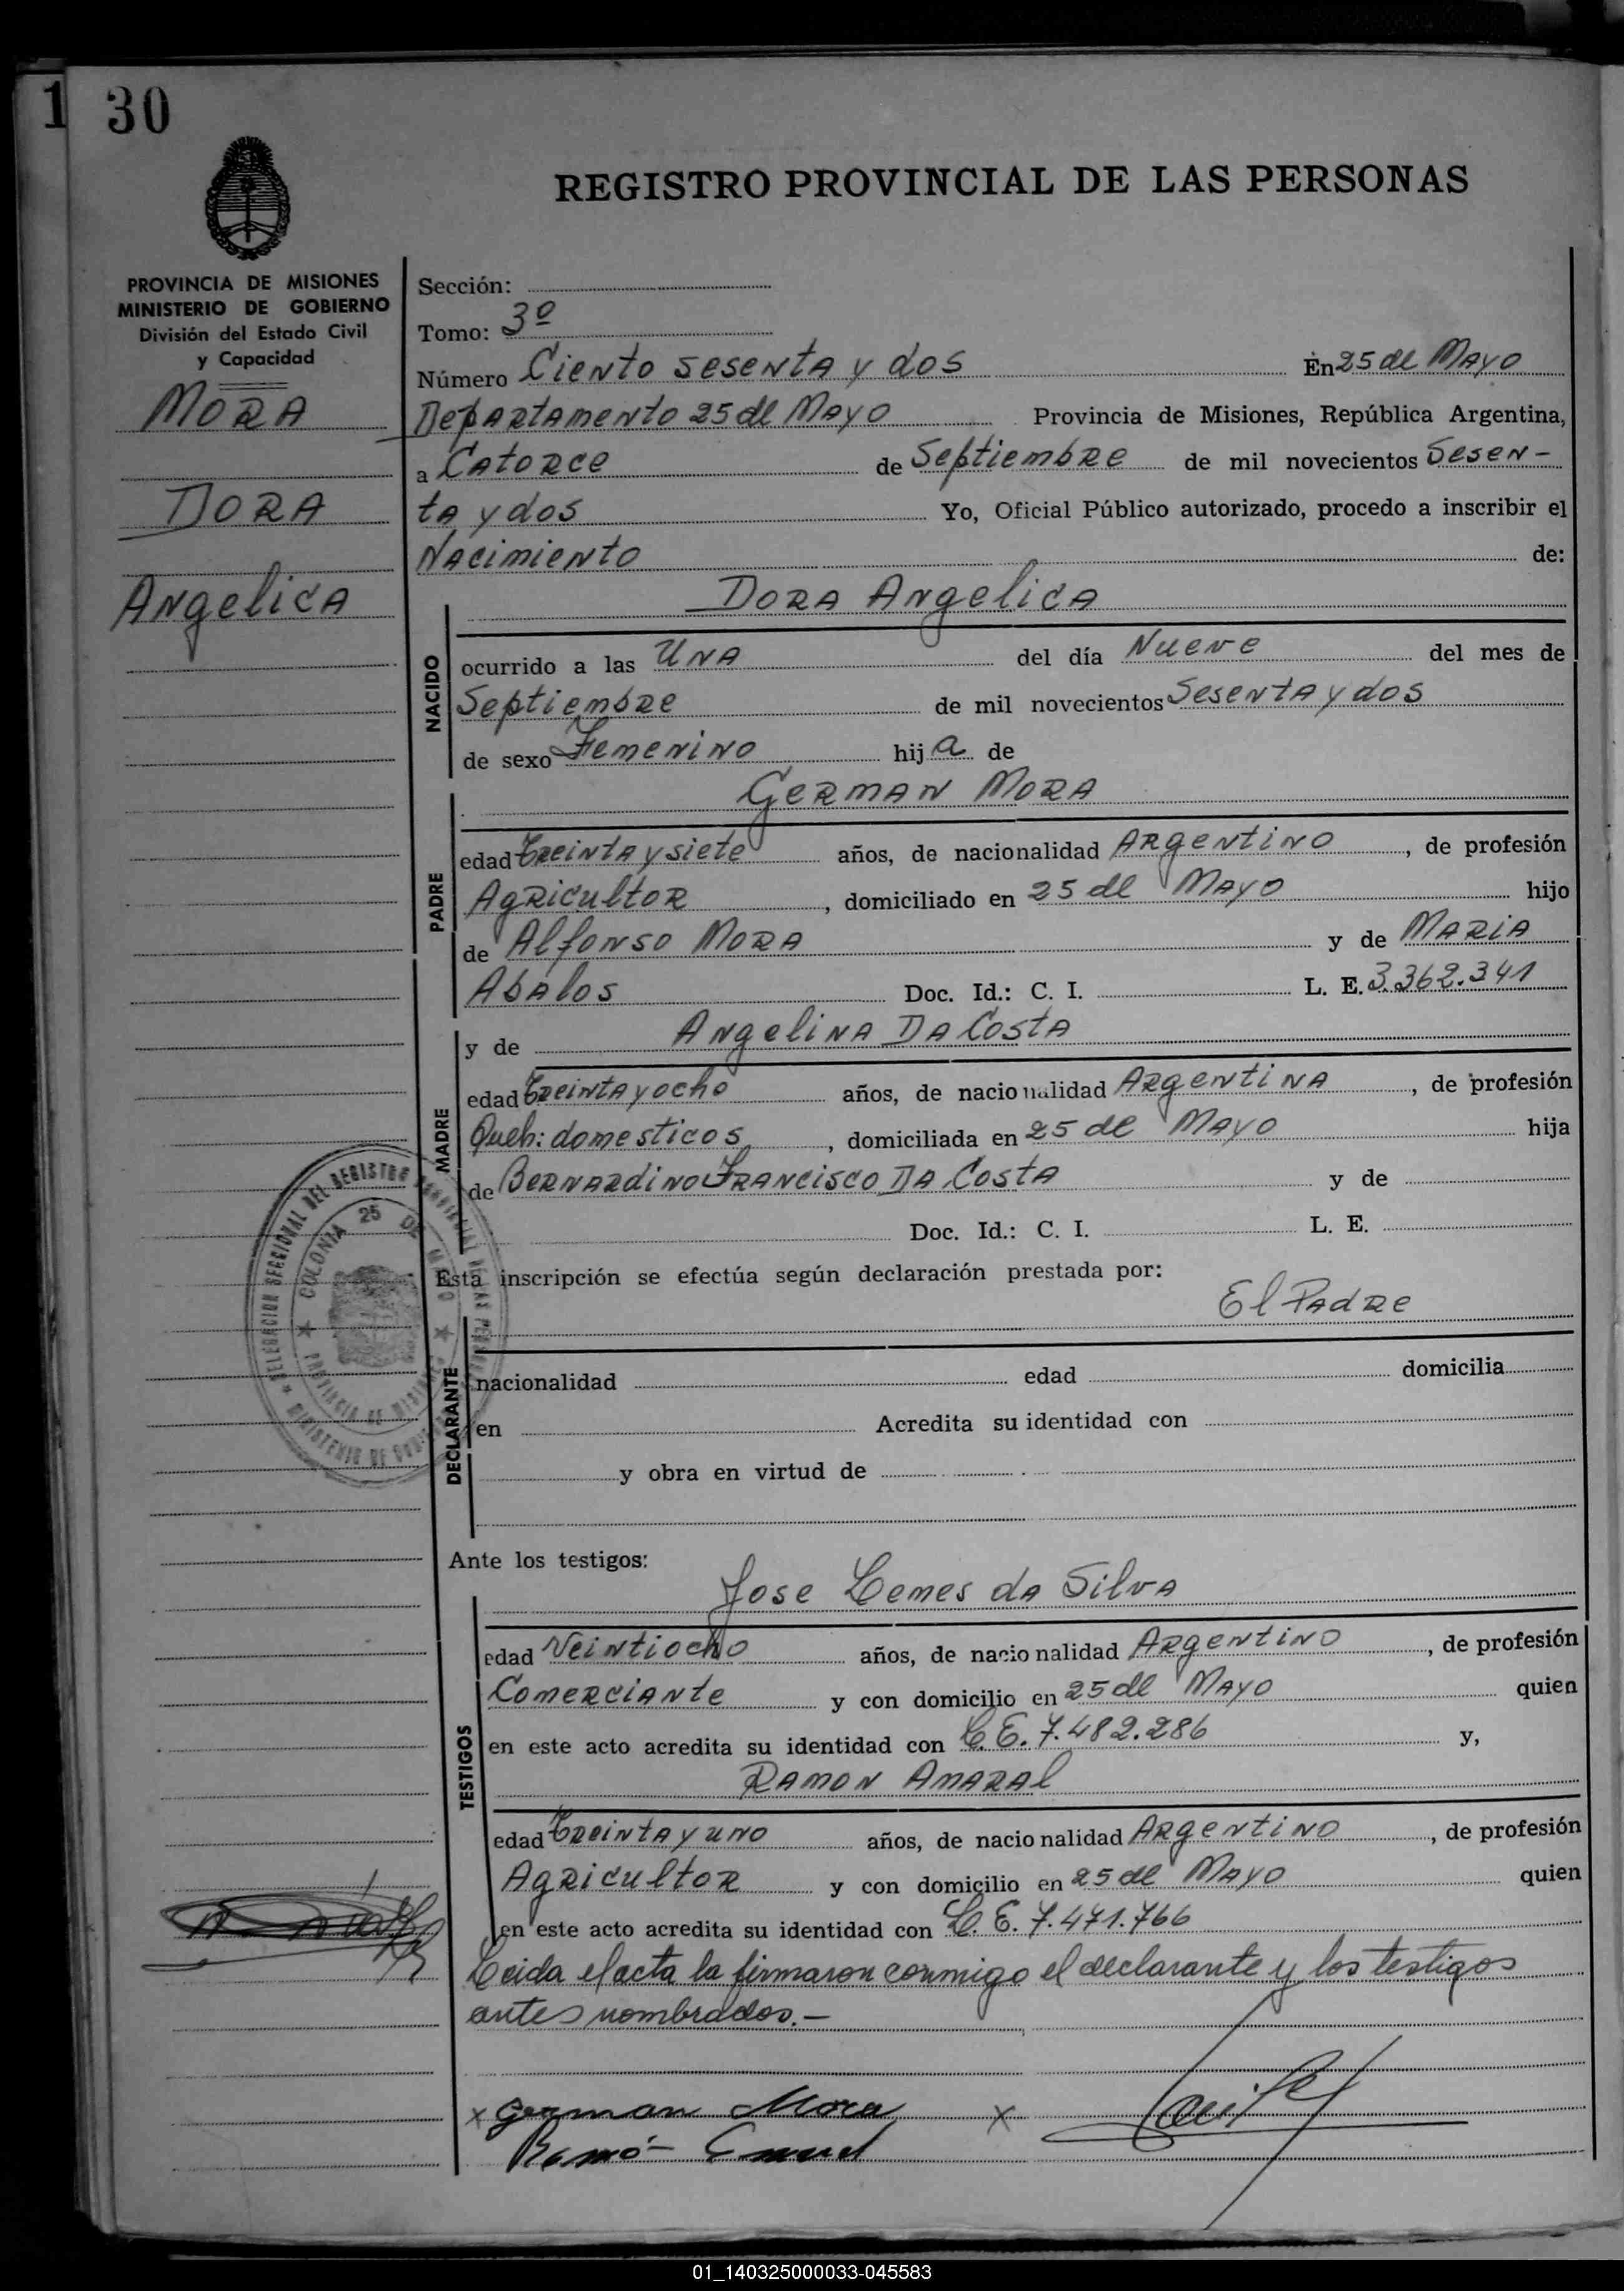 1 30
REGISTRO PROVINCIAL DE LAS PERSONAS
PROVINCIA DE MISIONES
MINISTERIO DE GOBIERNO
División del Estado Civil
y Capacidad
MORA
DORA
Angelica
Sección:
Tomo: 3º
Número Ciento sesenta y dos En 25 de Mayo
Departamento 25 de Mayo Provincia de Misiones, República Argentina,
a Catorce de Septiembre de mil novecientos Sesen-
ta y dos Yo, Oficial Público autorizado, procedo a inscribir el
Nacimiento de:
Dora Angelica
NACIDO
ocurrido a las Una del día Nueve del mes de
Septiembre de mil novecientos Sesenta y dos
de sexo Femenino hija de
German Mora
PADRE
edad Treinta y siete años, de nacionalidad Argentino, de profesión
Agricultor, domiciliado en 25 de Mayo hijo
de Alfonso Mora y de Maria
Abalos Doc. Id.: C. I. L. E. 3.362.341
y de Angelina Da Costa
MADRE
edad Treinta y ocho años, de nacionalidad Argentina, de profesión
Queh: domesticos, domiciliada en 25 de Mayo hija
de Bernardino Francisco Da Costa y de
Doc. Id.: C. I. L. E.
Esta inscripción se efectúa según declaración prestada por:
El Padre
DECLARANTE
nacionalidad edad domicilia
en Acredita su identidad con
y obra en virtud de
Ante los testigos:
Jose Lemes da Silva
TESTIGOS
edad Veintiocho años, de nacionalidad Argentino, de profesión
Comerciante y con domicilio en 25 de Mayo quien
en este acto acredita su identidad con L. E. 7.482.286 y,
Ramon Amaral
edad Treinta y uno años, de nacionalidad Argentino, de profesión
Agricultor y con domicilio en 25 de Mayo quien
en este acto acredita su identidad con L. E. 7.471.766
Leida el acta la firmaron conmigo el declarante y los testigos
antes nombrados.-
x German Mora x
COLONIA 25 DE MAYO
01_140325000033-045583